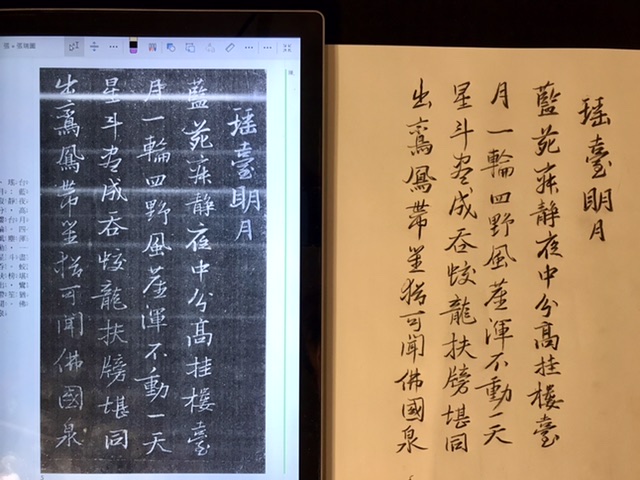 瑶臺明月
藍苑寂静夜中分高挂樓臺
月一輪四野風塵渾不動一天
星斗盡成吞蛟龍扶牓堪同
出鸞鳳帶笙猶可聞佛國泉
瑶臺明月
藍苑寂静夜中分高挂樓臺
月一輪四野風塵渾不動一天
星斗盡成吞蛟龍扶牓堪同
出鸞鳳帶笙猶可聞佛國泉